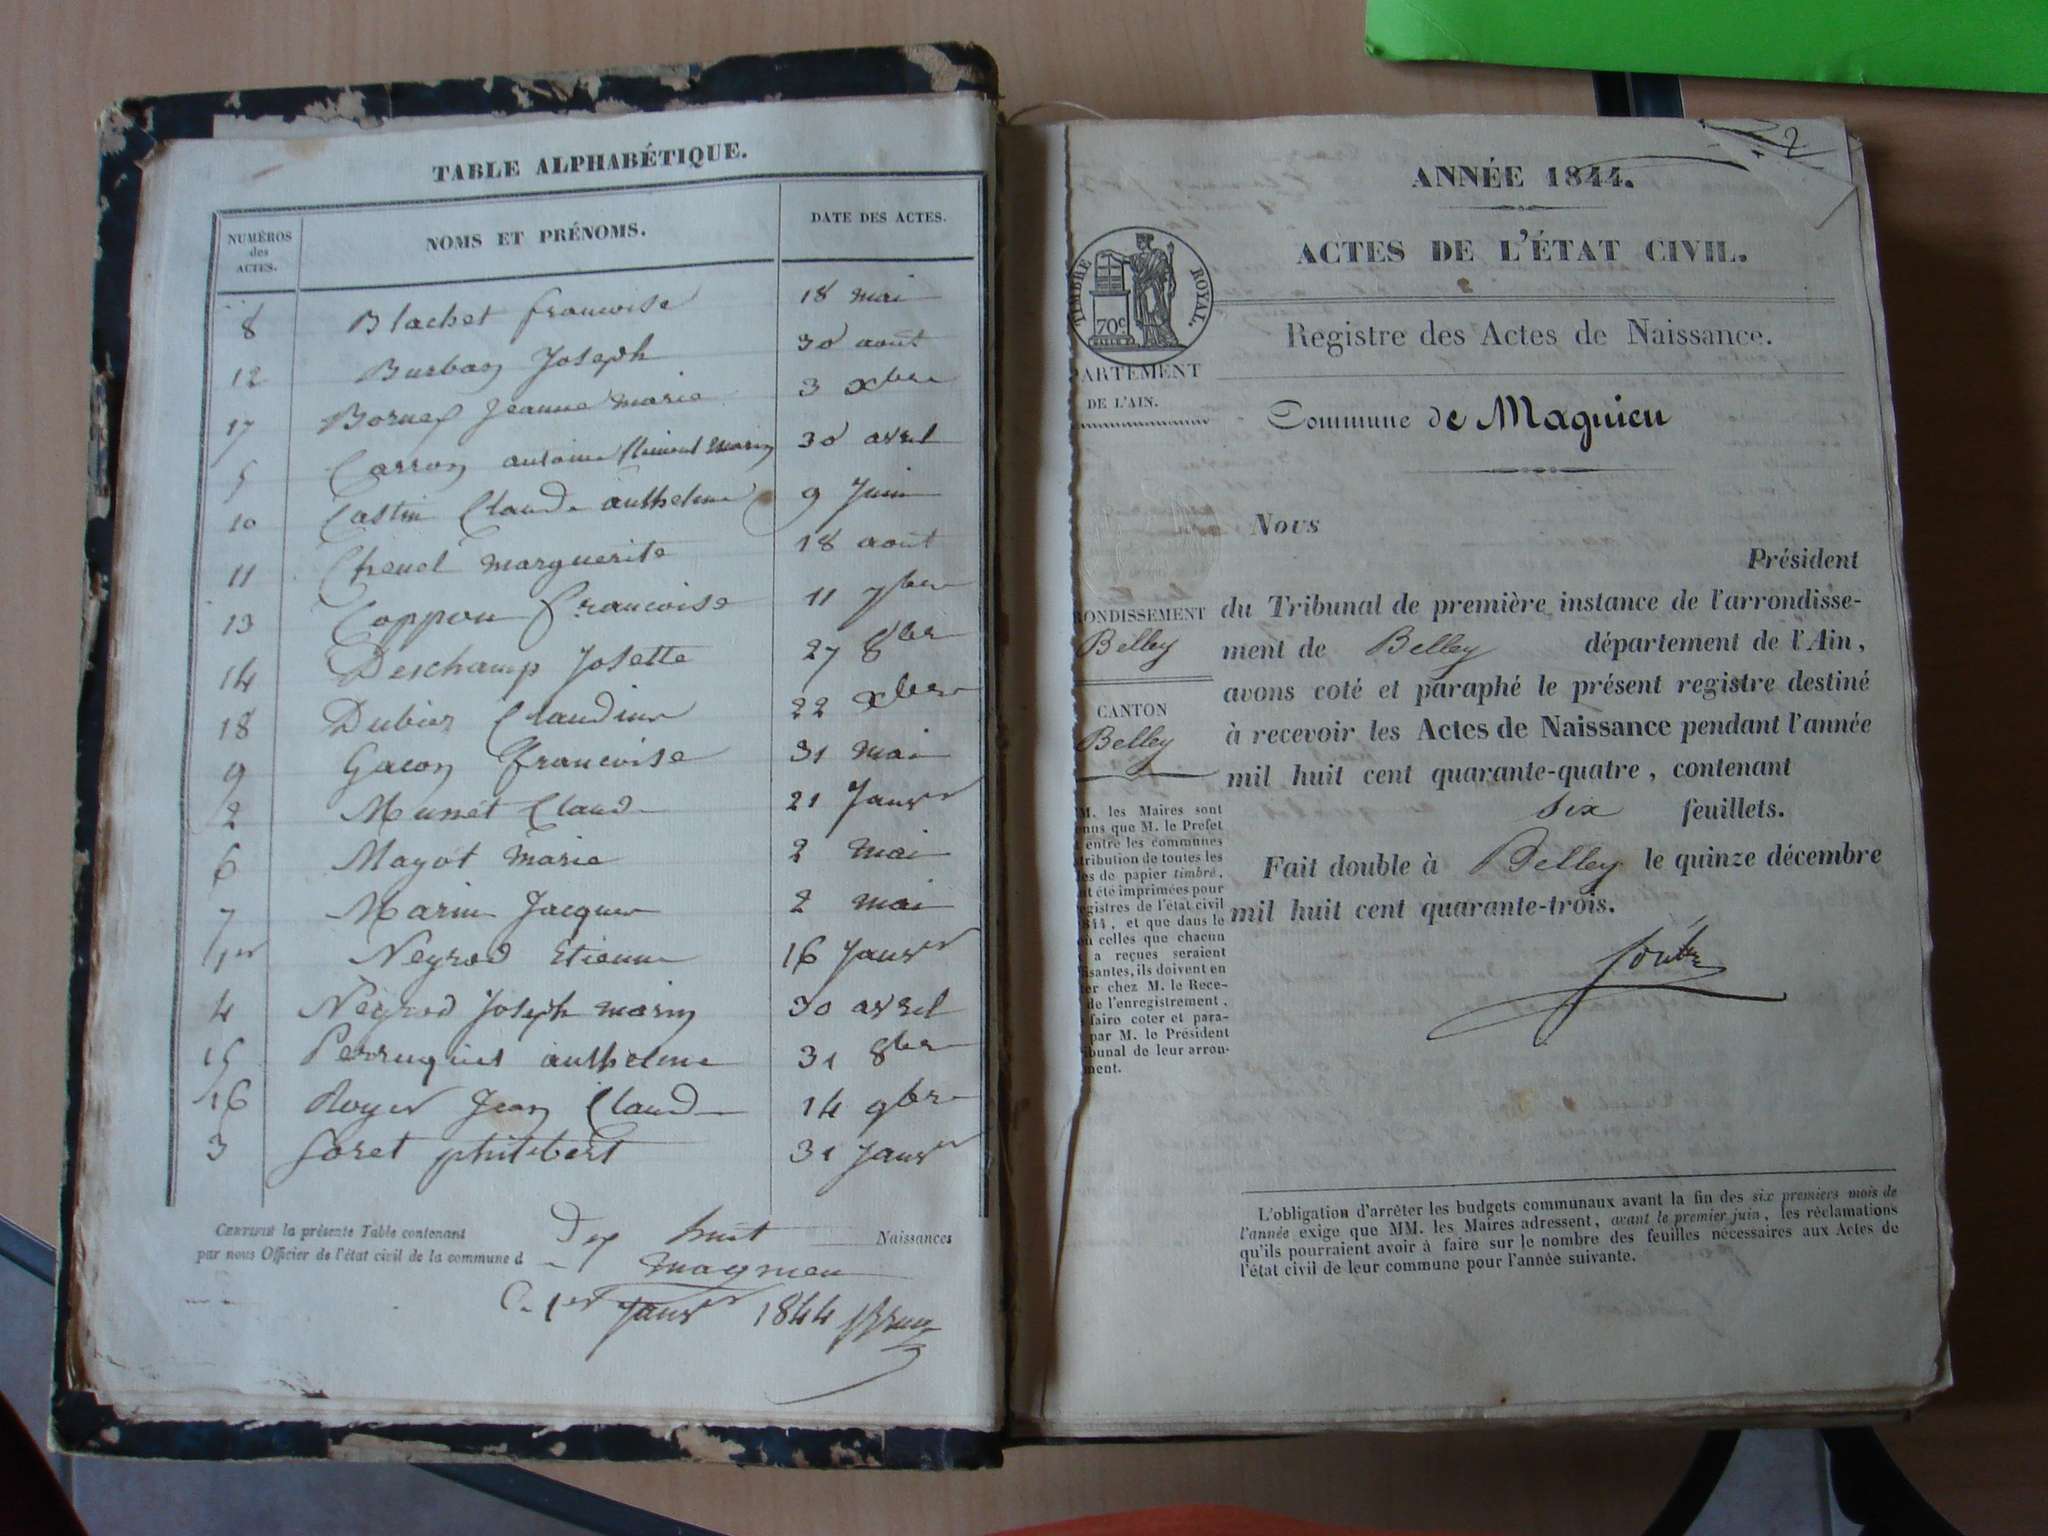 TABLE ALPHABÉTIQUE.
NUMÉROS des ACTES. NOMS ET PRÉNOMS. DATE DES ACTES.
8 Blachet francoise 18 mai
12 Burban Joseph 30 août
17 Jeanne marie 3 xbre
5 Carron antoine Clement marin 30 avril
10 Castin Claude anthelme 9 Juin
11 marguerite 18 août
13 Coppon francoise 11 7bre
14 Deschamp Josette 27 8bre
18 Claudine 22 xbre
9 Gacon Francoise 31 mai
2 Claude 21 Janvr
6 Mayot Marie 2 mai
7 Marin Jacques 2 mai
1er Neyrod Etienne 16 Janvr
4 Neyrod Joseph marin 30 avril
15 anthelme 31 8bre
16 Royer Jean Claude 14 9bre
3 Soret philibert 31 Janvr
CERTIFIÉ la présente Table contenant Dix huit Naissances
par nous Officier de l'état civil de la commune d magnieu
Ce 1er Janvr 1844
2
ANNÉE 1844.
ACTES DE L'ÉTAT CIVIL.
TIMBRE ROYAL.
70c
Registre des Actes de Naissance.
ARTEMENT
DE L'AIN.
Commune de Magnieu
Nous
Président
du Tribunal de première instance de l'arrondisse-
ment de Belley département de l'Ain,
avons coté et paraphé le présent registre destiné
à recevoir les Actes de Naissance pendant l'année
mil huit cent quarante-quatre, contenant
six feuillets.
Fait double à Belley le quinze décembre
mil huit cent quarante-trois.
RONDISSEMENT
Belley
CANTON
Belley
M. les Maires sont
nus que M. le Préfet
entre les communes
tribution de toutes les
es de papier timbré,
t été imprimées pour
gistres de l'état civil
844, et que dans le
ù celles que chacun
a reçues seraient
isantes, ils doivent en
er chez M. le Rece-
de l'enregistrement,
faire coter et para-
par M. le Président
ibunal de leur arron-
ment.
L'obligation d'arrêter les budgets communaux avant la fin des six premiers mois de
l'année exige que MM. les Maires adressent, avant le premier juin, les réclamations
qu'ils pourraient avoir à faire sur le nombre des feuilles nécessaires aux Actes de
l'état civil de leur commune pour l'année suivante.